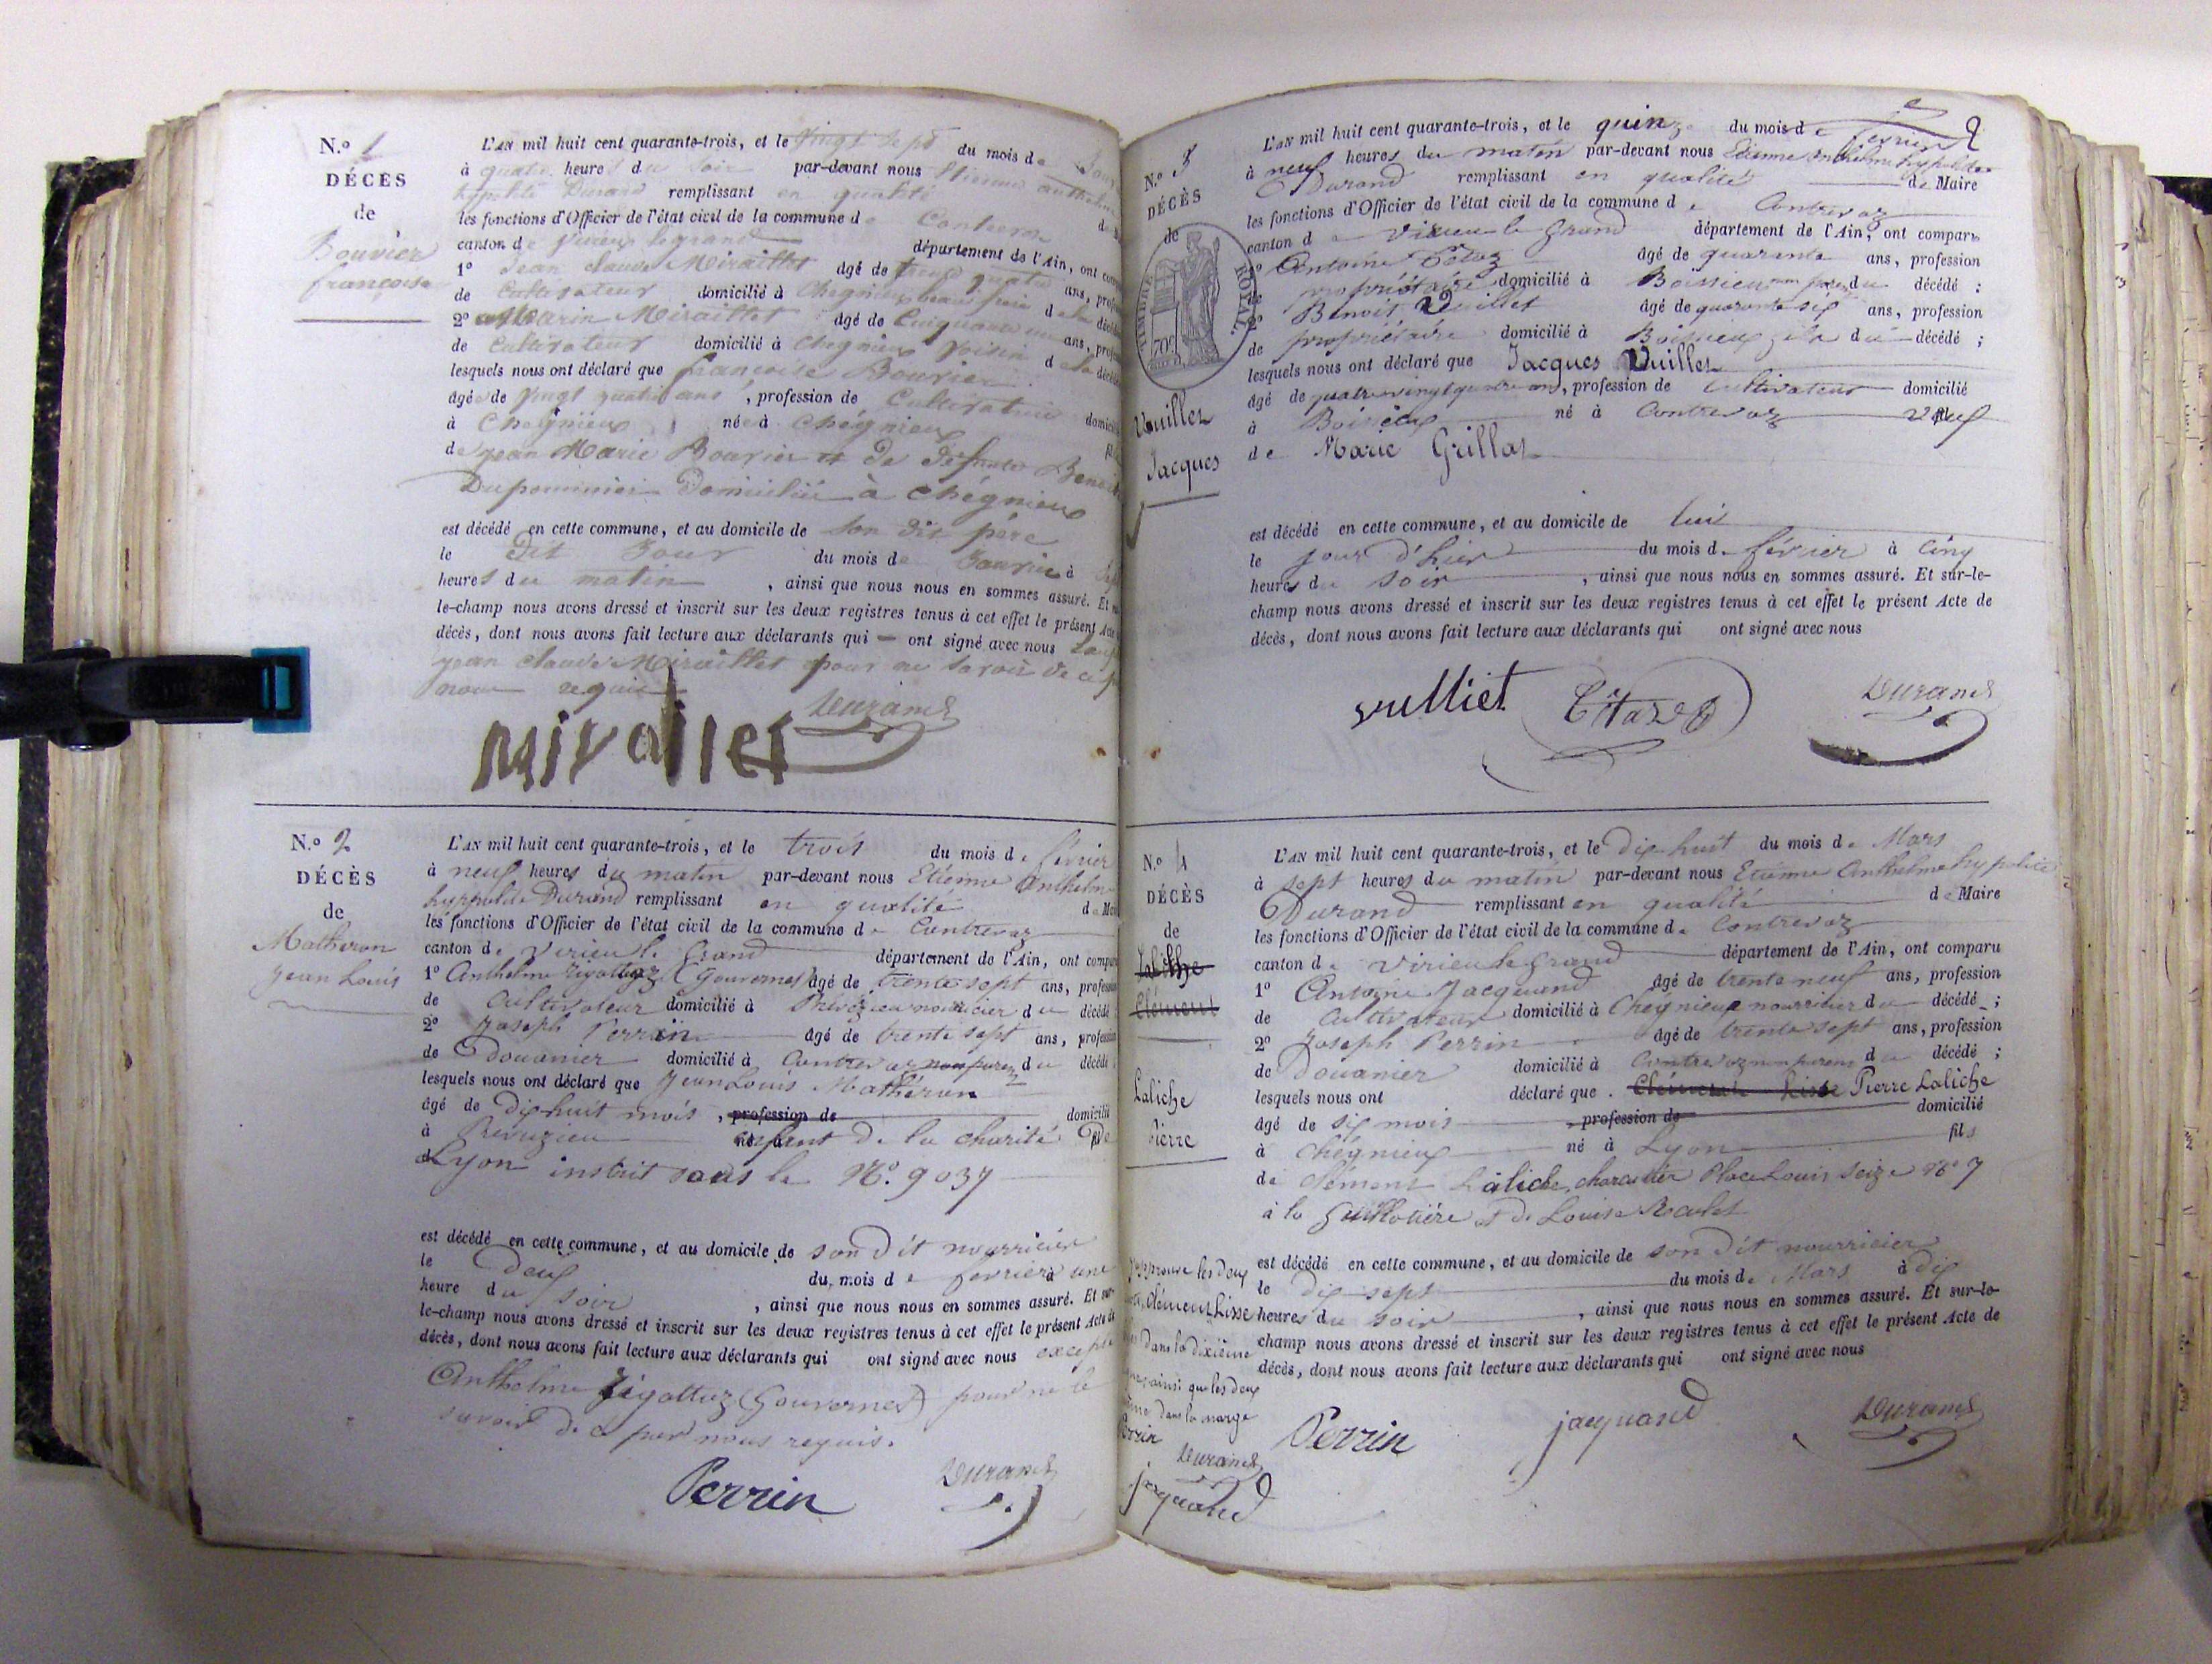 N.º 1
DÉCÈS
de
Bouvier
françoise
L'AN mil huit cent quarante-trois, et le vingt sept du mois de
à quatre heures du soir par-devant nous Etienne anthelme
hypolite Durand remplissant en qualité
les fonctions d'Officier de l'état civil de la commune de Contrevoz
canton de virieu le grand département de l'Ain, ont
1º Jean claude Miraillet âgé de trente quatre ans,
de Cultivateur domicilié à Chegnieu beau frère de la
2º Marin Miraillet âgé de Cinquante un ans,
de Cultivateur domicilié à Chegnieu voisin de la
lesquels nous ont déclaré que françoise Bouvier
âgée de vingt quatre ans, profession de Cultivatrice
à Chegnieu née à Chégnieu
de jean Marie Bouvier et de défunte
Dupommier domiciliée à Chégnieu
est décédé en cette commune, et au domicile de son dit père
le dit Jour du mois de Janvier à
heures du matin, ainsi que nous nous en sommes assuré. Et
le-champ nous avons dressé et inscrit sur les deux registres tenus à cet effet le présent Acte
décès, dont nous avons fait lecture aux déclarants qui — ont signé avec nous
jean claude Miraillet pour ne savoir de ce
nous requis
Durand
miralliet
N.º 2
DÉCÈS
de
Matheron
jean Louis
L'AN mil huit cent quarante-trois, et le trois du mois de février
à neuf heures du matin par-devant nous Etienne Anthelme
hyppolite Durand remplissant en qualité de
les fonctions d'Officier de l'état civil de la commune de Contrevoz
canton de virieu le Grand département de l'Ain, ont
1º Anthelme (Gouvernes) âgé de trente sept ans,
de Cultivateur domicilié à nourricier du décédé
2º Joseph Perrin âgé de trente sept ans,
de Douanier domicilié à Contrevoz non parent du décédé
lesquels nous ont déclaré que Jean Louis Mathéron
âgé de dix huit mois, profession de domicilié
à Prevuzieu enfant de la charité De
Lyon inscrit sous le Nº. 9037
est décédé en cette commune, et au domicile de son dit nourricier
le Deux du mois de fevrier à une
heure du soir, ainsi que nous nous en sommes assuré. Et sur-
le-champ nous avons dressé et inscrit sur les deux registres tenus à cet effet le présent Acte de
décès, dont nous avons fait lecture aux déclarants qui ont signé avec nous excepté
Anthelme (Gouvernes) pour ne le
savoir de ce par nous requis.
Perrin Durand
2
N.º 3
DÉCÈS
de
TIMBRE ROYAL
70c
Vuillez
Jacques
L'AN mil huit cent quarante-trois, et le quinze du mois de fevrier
à neuf heures du matin par-devant nous Etienne anthelme hypolite
Durand remplissant en qualité de Maire
les fonctions d'Officier de l'état civil de la commune de Contrevoz
canton de virieu le Grand département de l'Ain, ont comparu
1º Antoine âgé de quarante ans, profession
de propriétaire domicilié à Boissieu non parent du décédé ;
2º Benoit Vuillet âgé de quarante six ans, profession
de propriétaire domicilié à Boissieu fils du décédé ;
lesquels nous ont déclaré que Jacques Vuillez
âgé de quatre vingt quatre ans, profession de cultivateur domicilié
à Boissieu né à Contrevoz veuf
de Marie Grillat
est décédé en cette commune, et au domicile de lui
le jour d'hier du mois de février à Cinq
heures du soir, ainsi que nous nous en sommes assuré. Et sur-le-
champ nous avons dressé et inscrit sur les deux registres tenus à cet effet le présent Acte de
décès, dont nous avons fait lecture aux déclarants qui ont signé avec nous
vulliet Durand
N.º 4
DÉCÈS
de
Laliche
Clément
Laliche
Pierre
L'AN mil huit cent quarante-trois, et le Dix huit du mois de Mars
à sept heures du matin par-devant nous Etienne Anthelme hypolite
Durand remplissant en qualité de Maire
les fonctions d'Officier de l'état civil de la commune de Contrevoz
canton de virieu le Grand département de l'Ain, ont comparu
1º Antoine Jacquand âgé de trente neuf ans, profession
de Cultivateur domicilié à Chégnieu nourricier du décédé ;
2º Joseph Perrin âgé de trente sept ans, profession
de Douanier domicilié à Contrevoz non parent du décédé ;
lesquels nous ont déclaré que Clément Lisse Pierre Laliche
âgé de six mois, profession de domicilié
à Chégnieu né à Lyon fils
de Clément Laliche, charcutier Place Louis seize Nº 7
à la Guillotière et de Louise
est décédé en cette commune, et au domicile de son dit nourricier
le dix sept du mois de Mars à dix
heures du soir, ainsi que nous nous en sommes assuré. Et sur-le-
champ nous avons dressé et inscrit sur les deux registres tenus à cet effet le présent Acte de
décès, dont nous avons fait lecture aux déclarants qui ont signé avec nous
Perrin jacquand Durand
approuve les deux
Clément Lisse
dans la dixième
ainsi que les deux
dans la marge
Perrin
Durand
jacquand